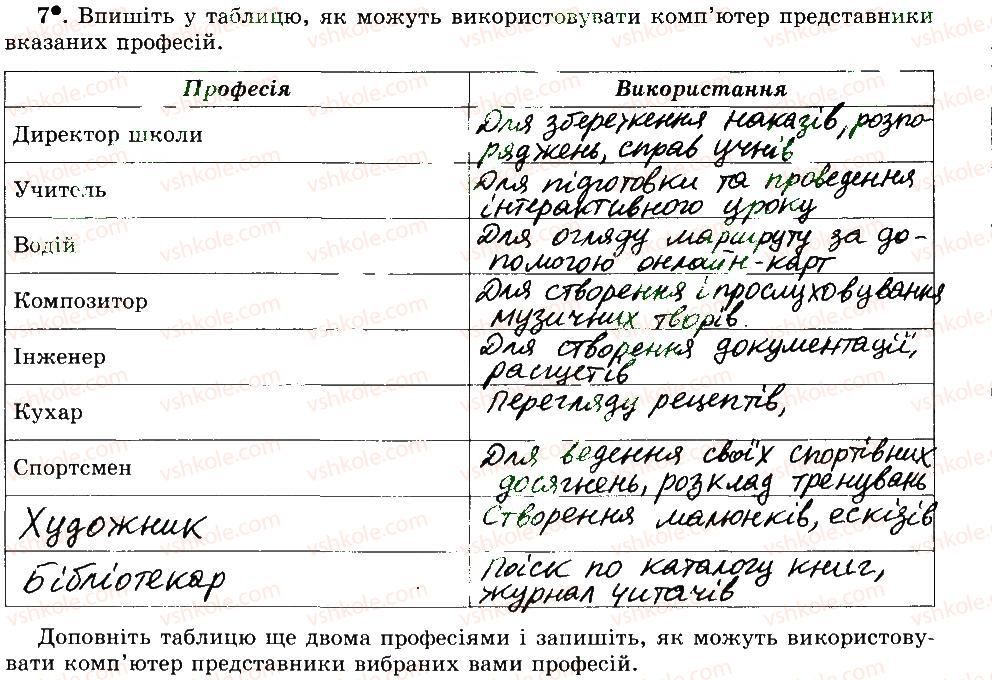 7●. Впишіть у таблицю, як можуть використовувати комп’ютер представники
вказаних професій.
Професія Використання
Директор школи Для збереження наказів, розпо-
ряджень, справ учнів
Учитель Для підготовки та проведення
інтерактивного уроку
Водій Для огляду маршруту за до-
помогою онлайн-карт
Композитор Для створення і прослуховування
музичних творів.
Інженер Для створення документації,
расщетів
Кухар Перегляду рецептів,
Спортсмен Для ведення своїх спортівних
досягнень, розклад тренувань
Художник Створення малюнків, ескізів
Бібліотекар Поіск по каталогу книг,
журнал читачів
Доповніть таблицю ще двома професіями і запишіть, як можуть використову-
вати комп’ютер представники вибраних вами професій.